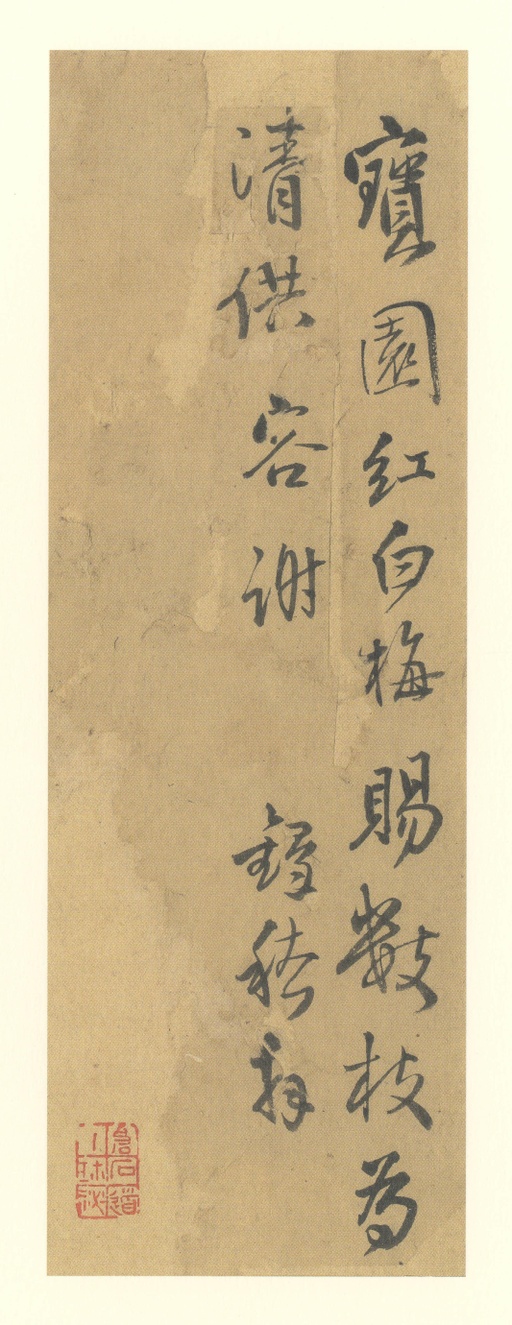 寶園紅白梅賜數枝為
清供容謝 鐸稽拜